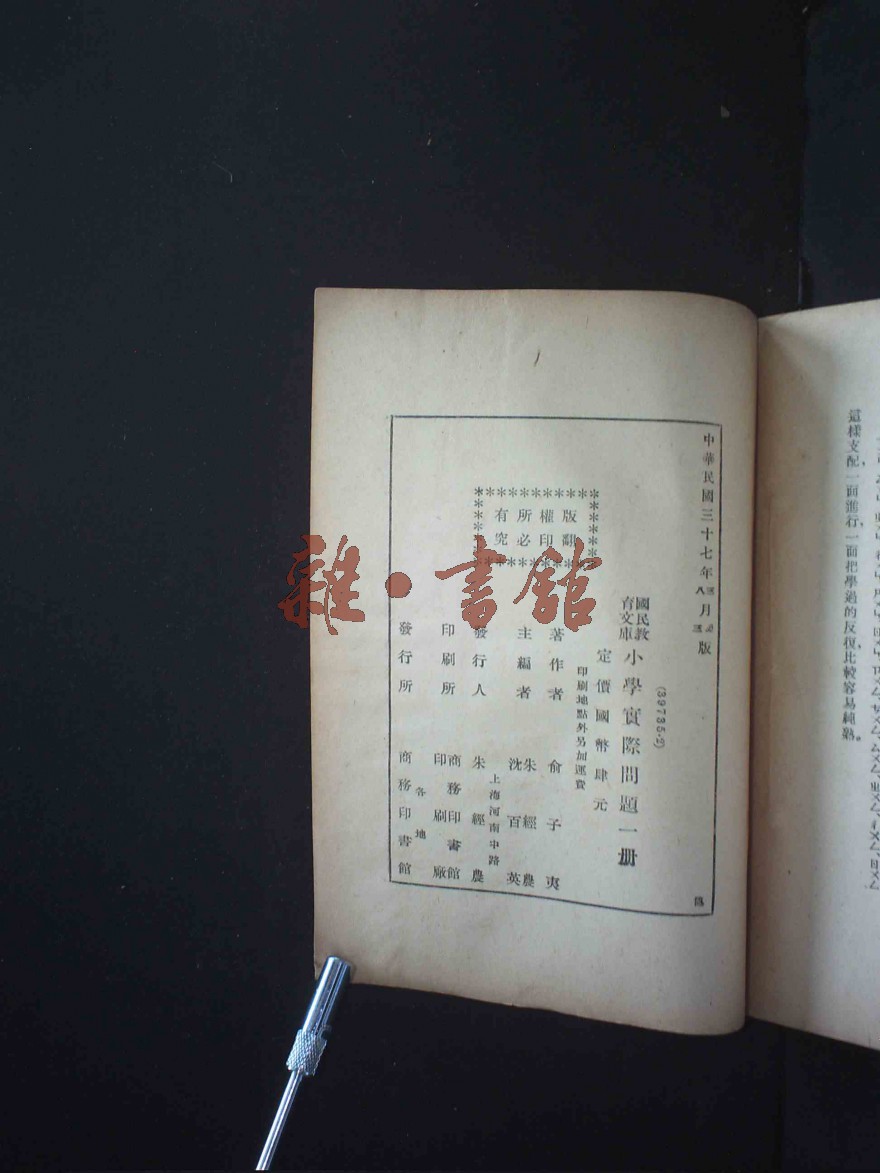 中華民國三十七年三月初版
八 三
(39735·2)
國民教育文庫
小學實際問題一册
定價國幣肆元
印刷地點外另加運費
版權所有
翻印必究
著作者 俞子夷
主編者 朱經農 沈百英
上海河南中路
發行人 朱經農
印刷所 商務印書館 印刷廠
各地
發行所 商務印書館
這樣支配,一面進行,一面把學過的反復比較容易純熟。
雜·書館